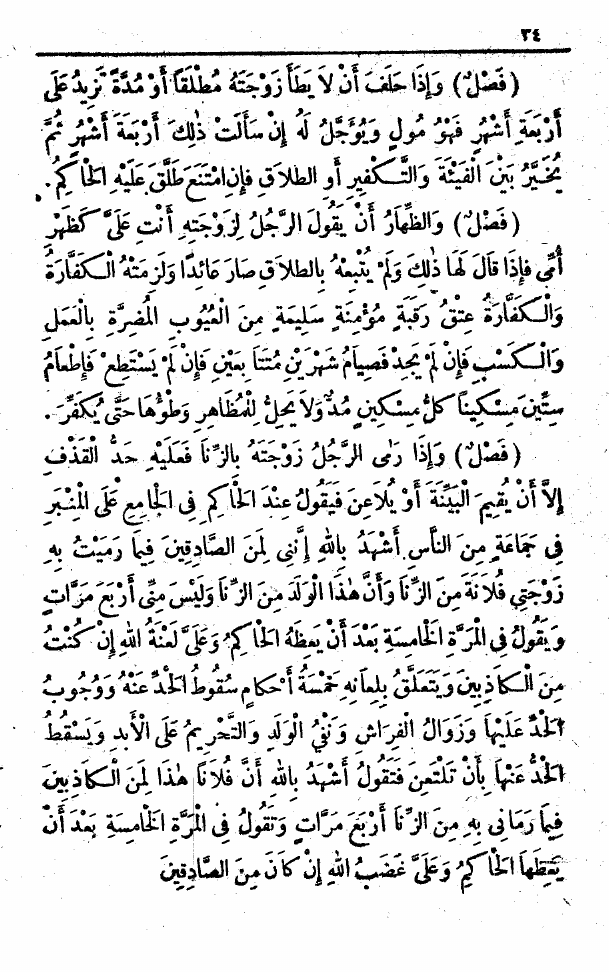 ٣٤
(فَصْلٌ) وَإِذَا حَلَفَ أَنْ لَا يَطَأَ زَوْجَتَهُ مُطْلَقاً أَوْ مُدَّةً تَزِيدُ عَلَى
أَرْبَعَةِ أَشْهُرٍ فَهُوَ مُولٍ وَيُؤَجَّلُ لَهُ إِنْ سَأَلَتْ ذٰلِكَ أَرْبَعَةَ أَشْهُرٍ ثُمَّ
يُخَيَّرُ بَيْنَ الْفَيْئَةِ وَالتَّكْفِيرِ أَوِ الطَّلَاقِ فَإِنِ امْتَنَعَ طَلَّقَ عَلَيْهِ الْحَاكِمُ .
(فَصْلٌ) وَالظِّهَارُ أَنْ يَقُولَ الرَّجُلُ لِزَوْجَتِهِ أَنْتِ عَلَيَّ كَظَهْرِ
أُمِّي فَإِذَا قَالَ لَهَا ذٰلِكَ وَلَمْ يُتْبِعْهُ بِالطَّلَاقِ صَارَ عَائِدًا وَلَزِمَتْهُ الْكَفَّارَةُ
وَالْكَفَّارَةُ عِتْقُ رَقَبَةٍ مُؤْمِنَةٍ سَلِيمَةٍ مِنَ الْعُيُوبِ الْمُضِرَّةِ بِالْعَمَلِ
وَالْكَسْبِ فَإِنْ لَمْ يَجِدْ فَصِيَامُ شَهْرَيْنِ مُتَتَابِعَيْنِ فَإِنْ لَمْ يَسْتَطِعْ فَإِطْعَامُ
سِتِّينَ مِسْكِينًا كُلُّ مِسْكِينٍ مُدٌّ وَلَا يَحِلُّ لِلْمُظَاهِرِ وَطْؤُهَا حَتَّى يُكَفِّرَ .
(فَصْلٌ) وَإِذَا رَمَى الرَّجُلُ زَوْجَتَهُ بِالزِّنَا فَعَلَيْهِ حَدُّ الْقَذْفِ
إِلَّا أَنْ يُقِيمَ الْبَيِّنَةَ أَوْ يُلَاعِنَ فَيَقُولُ عِنْدَ الْحَاكِمِ فِي الْجَامِعِ عَلَى الْمِنْبَرِ
فِي جَمَاعَةٍ مِنَ النَّاسِ أَشْهَدُ بِاللهِ إِنَّنِي لَمِنَ الصَّادِقِينَ فِيمَا رَمَيْتُ بِهِ
زَوْجَتِي فُلَانَةَ مِنَ الزِّنَا وَأَنَّ هٰذَا الْوَلَدَ مِنَ الزِّنَا وَلَيْسَ مِنِّي أَرْبَعَ مَرَّاتٍ
وَيَقُولُ فِي الْمَرَّةِ الْخَامِسَةِ بَعْدَ أَنْ يَعِظَهُ الْحَاكِمُ وَعَلَيَّ لَعْنَةُ اللهِ إِنْ كُنْتُ
مِنَ الْكَاذِبِينَ وَيَتَعَلَّقُ بِلِعَانِهِ خَمْسَةُ أَحْكَامٍ سُقُوطُ الْحَدِّ عَنْهُ وَوُجُوبُ
الْحَدِّ عَلَيْهَا وَزَوَالُ الْفِرَاشِ وَنَفْيُ الْوَلَدِ وَالتَّحْرِيمُ عَلَى الْأَبَدِ وَيَسْقُطُ
الْحَدُّ عَنْهَا بِأَنْ تَلْتَعِنَ فَتَقُولُ أَشْهَدُ بِاللهِ أَنَّ فُلَانًا هٰذَا لَمِنَ الْكَاذِبِينَ
فِيمَا رَمَانِي بِهِ مِنَ الزِّنَا أَرْبَعَ مَرَّاتٍ وَتَقُولُ فِي الْمَرَّةِ الْخَامِسَةِ بَعْدَ أَنْ
يَعِظَهَا الْحَاكِمُ وَعَلَيَّ غَضَبُ اللهِ إِنْ كَانَ مِنَ الصَّادِقِينَ